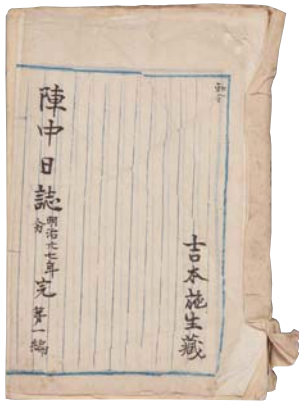 吉本施生藏
陣中日誌 明治七年 完 第一編